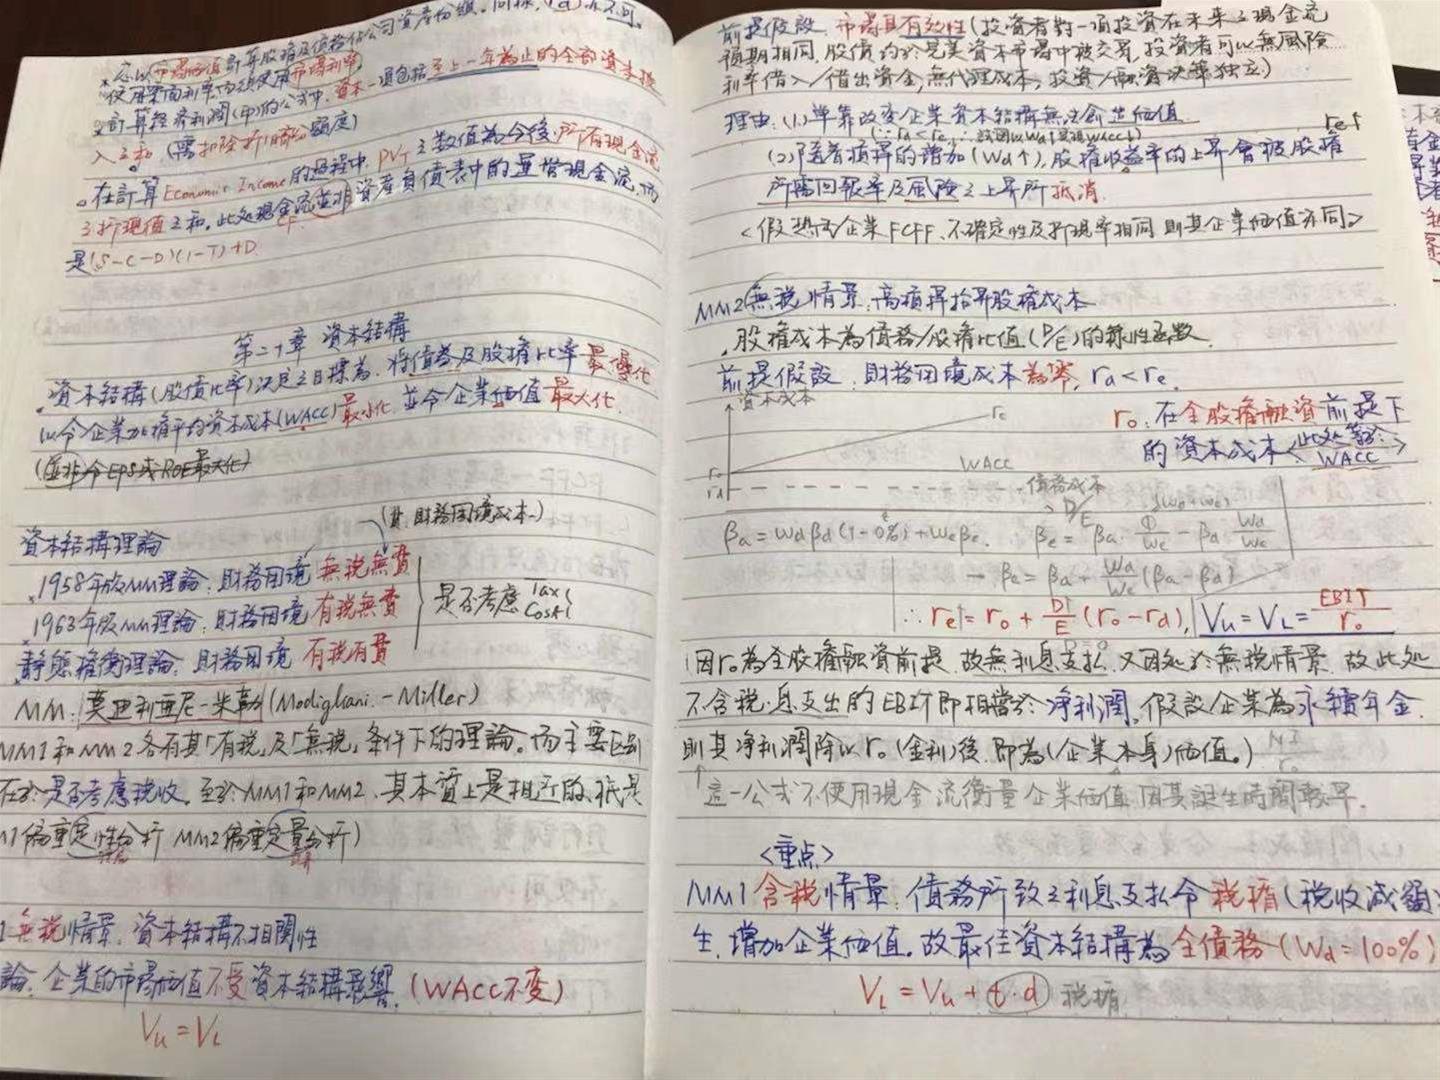 應以市場價值計算股權及債務佔公司資產份額。同樣, rd亦不可
使用票面利率而須使用市場利率
計算經濟利潤(EP)的公式中, 資本一項包括至上一年為止的全部資本投
入之和 (需扣除折舊額度)
在計算Economic Income的過程中, PVT之數值為今後所有現金流
之折現值之和。此處現金流並非資產負債表中的運營現金流, 而
CF
是(S-C-D)(1-T)+D.
第二十章 資本結構
資本結構(股債比率)決定之目標為, 將債務及股權比率最優化
以令企業加權平均資本成本(WACC)最小化, 並令企業価值最大化.
(並非令EPS或ROE最大化)
(非財務困境成本)
資本結構理論
1958年版MM理論: 財務困境 無稅無費
1963年版MM理論: 財務困境 有稅無費
靜態權衡理論: 財務困境 有稅有費
是否考慮 Tax Cost
MM: 莫迪利亞尼-米勒(Modigliani-Miller)
MM1和MM2各有其「有稅」及「無稅」條件下的理論。而主要區別
在於是否考慮稅收。至於MM1和MM2, 其本質上是相近的, 祇是
M1偏重定性分析 MM2偏重定量分析)
1無稅情景: 資本結構不相關性
論: 企業的市場価值不受資本結構影響. (WACC不变)
Vu = VL
前提假設: 市場具有效性(投資者對一項投資在未來之現金流
預期相同, 股債均於完美資本市場中被交易, 投資者可以無風險
利率借入/借出資金, 無代理成本, 投資/融資決策独立)
理由: (1) 單靠改变企業資本結構無法創出価值
(2)隨着槓桿的增加(Wd↑), 股權收益率的上昇會被股權 re↑
所需回報率及風險之上昇所抵消.
<假想両企業FCFF、不確定性及折現率相同 則其企業価值亦同>
MM2無稅情景: 高槓桿抬昇股權成本
股權成本為債務/股權比值(D/E)的線性函數.
前提假設: 財務困境成本為零, rd<re.
資本成本
re
r0: 在全股權融資前提下
的資本成本<此処等於WACC>
r0
WACC
rd
債務成本
D/E
βa = Wdβd(1-0%)+Weβe. βe = βa· (Wd+We)/We - βd Wd/We
→ βe = βa + Wd/We (βa-βd)
∴ re↑ = r0 + D↑/E (r0-rd), Vu = VL = EBIT/r0
因r0為全股權融資前提, 故無利息支払, 又因処於無稅情景, 故此処
不含稅、息支出的EBIT即相當於淨利潤, 假設企業為永續年金,
則其淨利潤除以r0(金利)後, 即為(企業本身)価值。) NI/r0
↑這一公式不使用現金流衡量企業価值, 因其誕生時間較早.
<重点>
MM1含稅情景: 債務所致之利息支払令稅盾(稅收減額)
生, 增加企業価值。故最佳資本結構為全債務(Wd=100%)
VL = Vu + t·d 稅盾